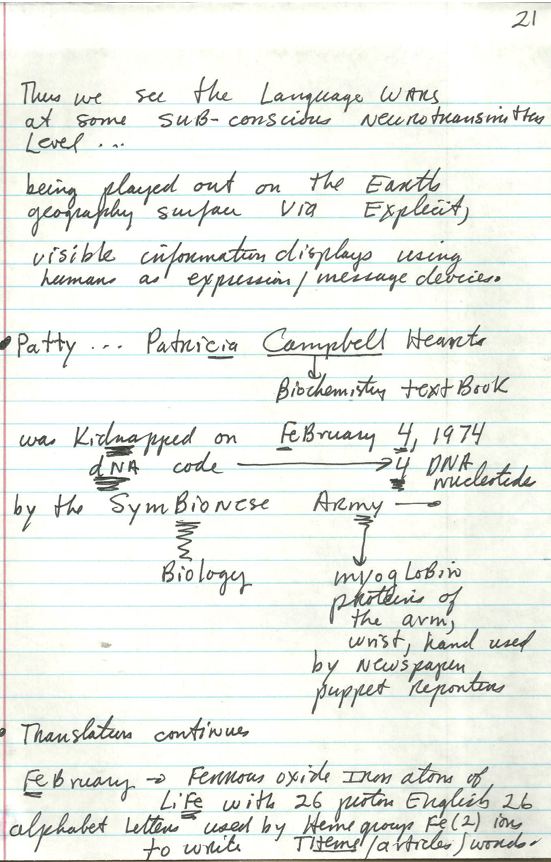 21
Thus we see the Language WARS
at some sub-conscious Neurotransmitter
Level ...
being played out on the Earth
geography surface via Explicit,
visible information displays using
humans as expression/message devices.
• Patty ... Patricia Campbell Hearts
Biochemistry text Book
was Kidnapped on FeBruary 4, 1974
dNA code → 4 DNA
nucleotides
by the SymBioNese Army →
Biology myogLoBin
proteins of
the arm,
wrist, hand used
by Newspaper
puppet reporters
• Translation continues
FeBruary → Ferrous oxide Iron atoms of
LiFe with 26 proton English 26
alphabet letters used by Heme group Fe(2) ions
to write THemes/articles/words.